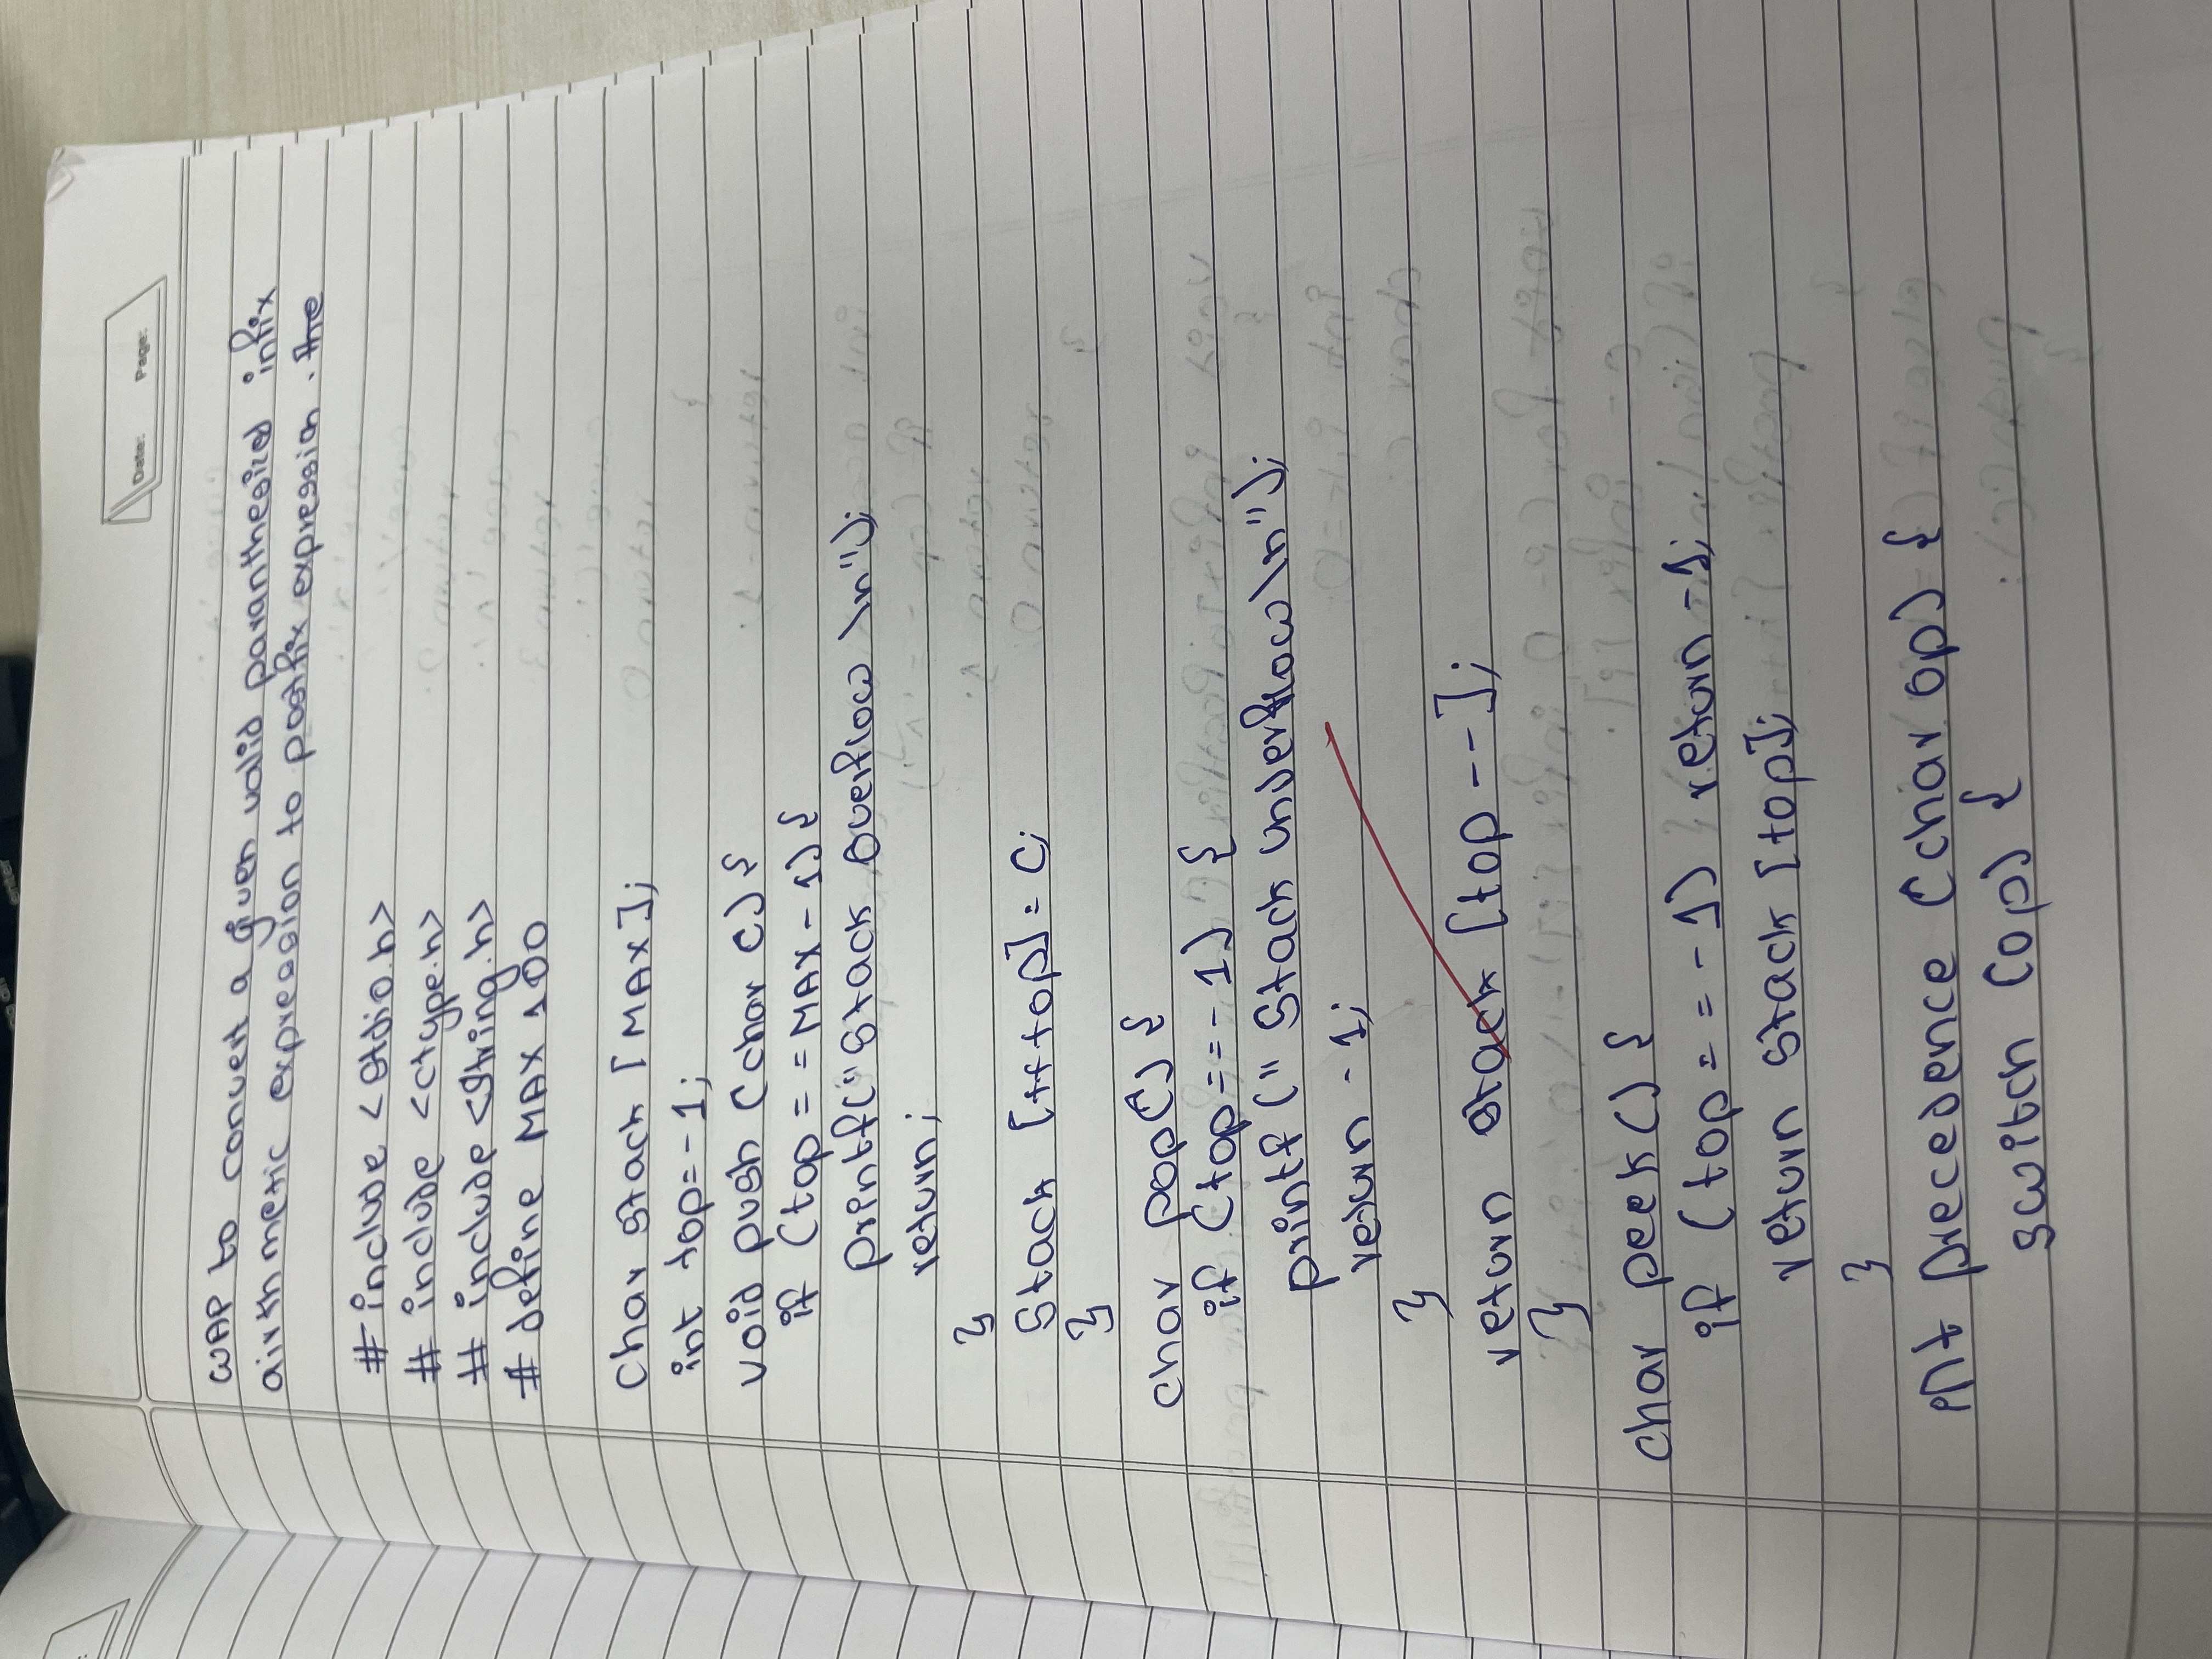 Date: Page:
WAP to convert a given valid paranthesized infix
airthmetic expression to postfix expression. the
# include <stdio.h>
# include <ctype.h>
# include <string.h>
# define MAX 100
Char stack [MAX];
int top=-1;
void push (char C) {
if (top = =MAX-1) {
printf("Stack Overflow \n");
return;
}
Stack [++top]= C;
}
char pop() {
if (top==-1) {
printf (" Stack Underflow \n");
return -1;
}
return stack [top--];
}
char peek() {
if (top= = -1) return -1;
return stack [top];
}
int precedence (char op) {
switch (op) {